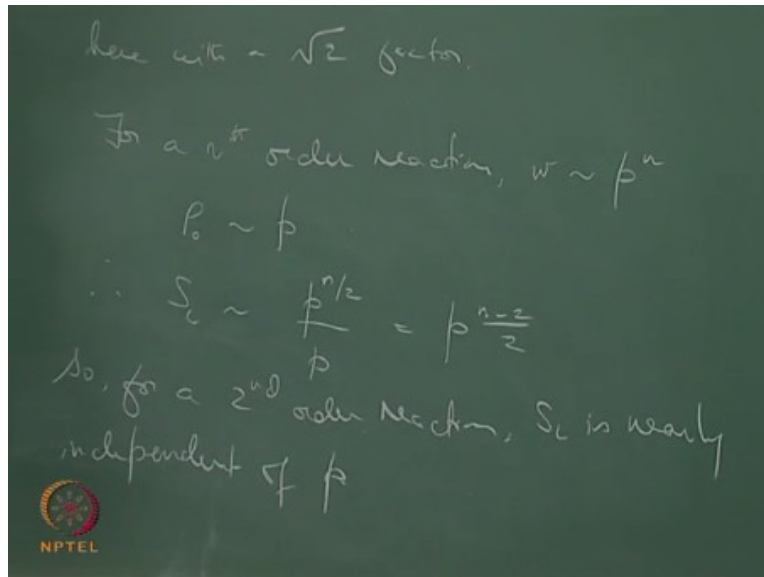 here with a √2 factor.
For a nth order reaction, w ~ p^n
ρ₀ ~ p
∴ S_L ~ p^(n/2) / p = p^((n-2)/2)
So, for a 2nd order reaction, S_L is nearly
independent of p
NPTEL